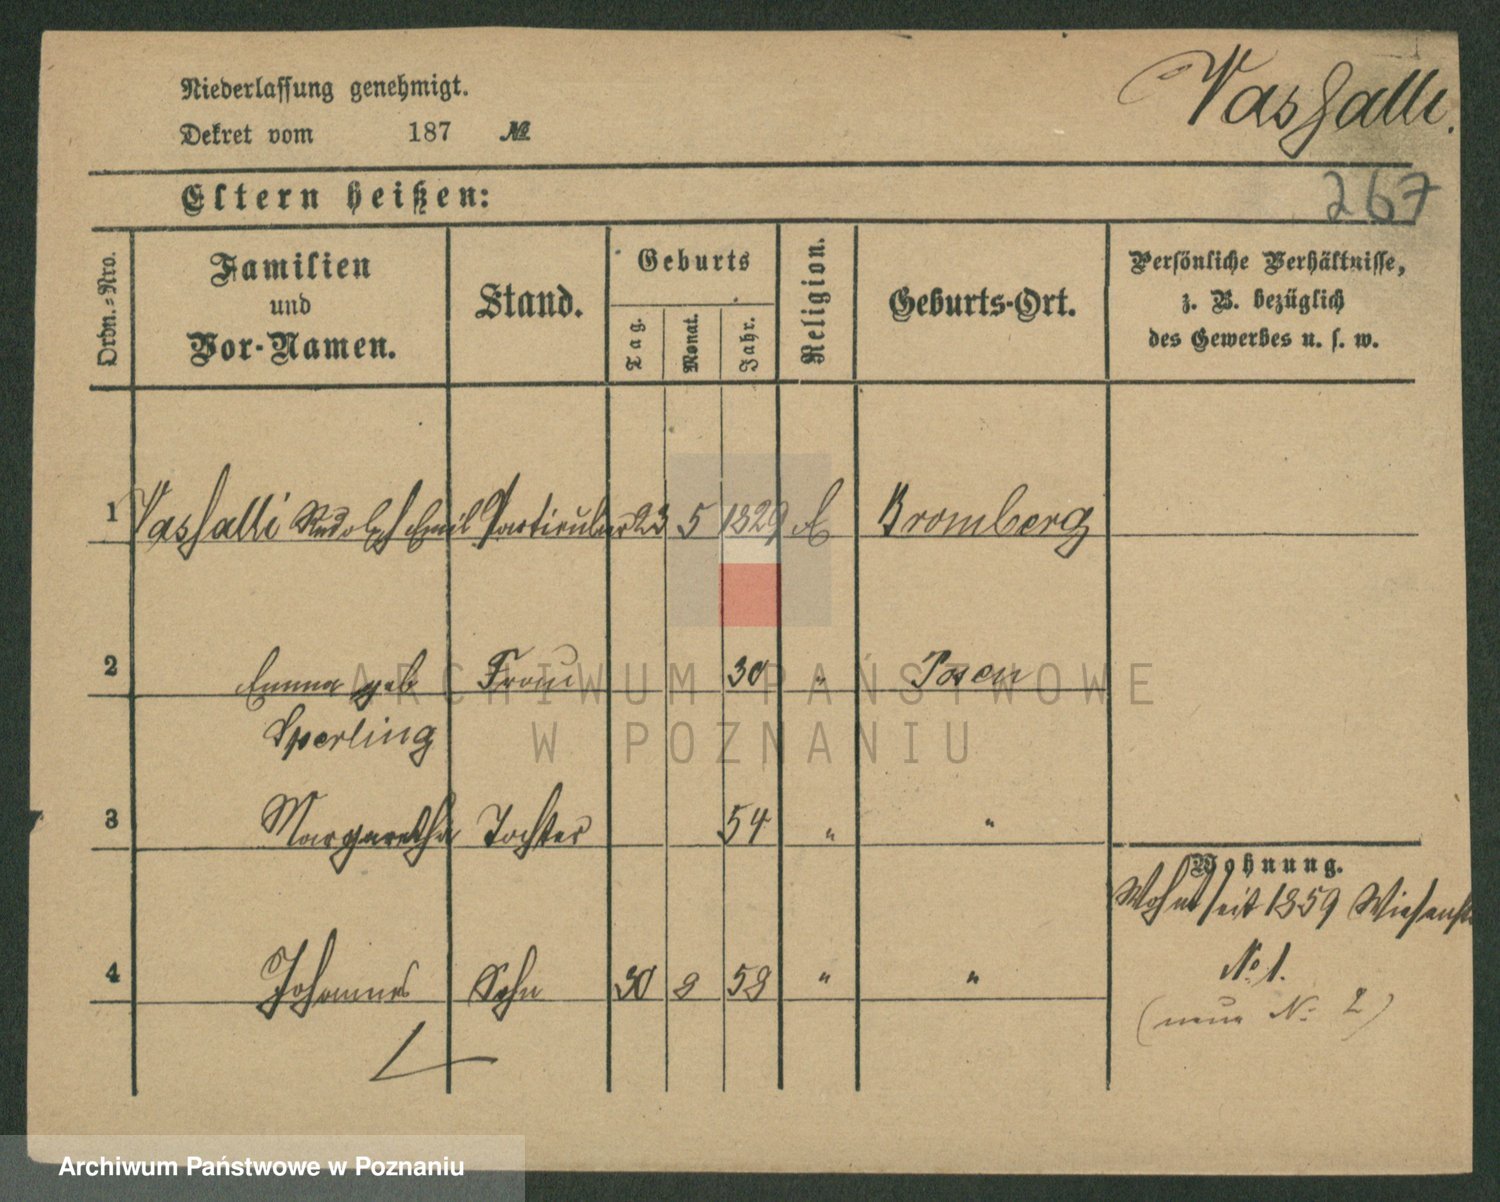 Vassalli.
Niederlassung genehmigt.
Dekret vom 187 №
267
Eltern heißen:
Ordn.-Nro.
Familien
und
Vor-Namen.
Stand.
Geburts
Tag.
Monat.
Jahr.
Religion.
Geburts-Ort.
Persönliche Verhältnisse,
z. B. bezüglich
des Gewerbes u. s. w.
1 Vassalli Rudolph Emil Particulier 23 5 1829 E Bromberg
2 Emma geb Frau 30 " Posen
Sperling
3 Margaretha Tochter 54 " "
Wohnung.
Wohnt seit 1859 Wiesenstr
No 1.
(neue No 2)
4 Johannes Sohn 30 8 58 " "
ARCHIWUM PAŃSTWOWE
W POZNANIU
Archiwum Państwowe w Poznaniu